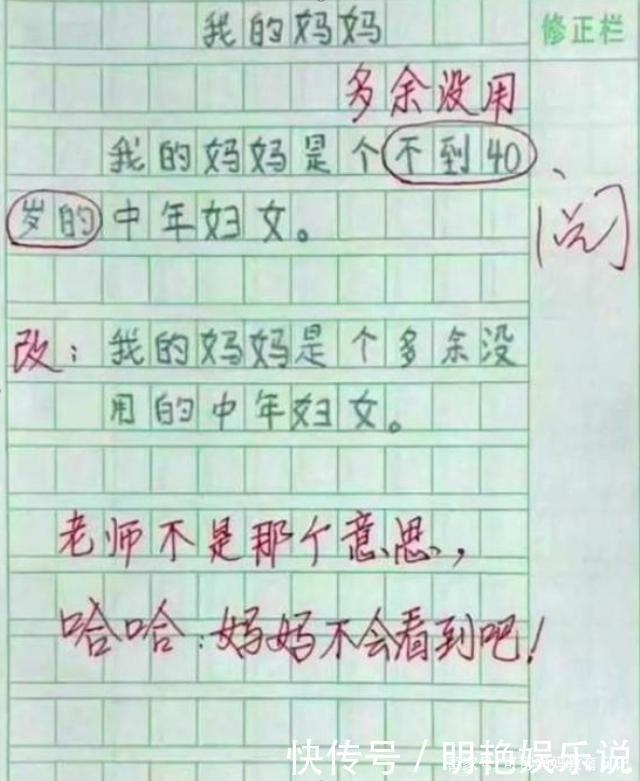 我的妈妈
修正栏
多余没用
我的妈妈是个不到40
岁的中年妇女。
阅
改：我的妈妈是个多余没
用的中年妇女。
老师不是那个意思，
哈哈：妈妈不会看到吧！
快传号/明艳娱乐说